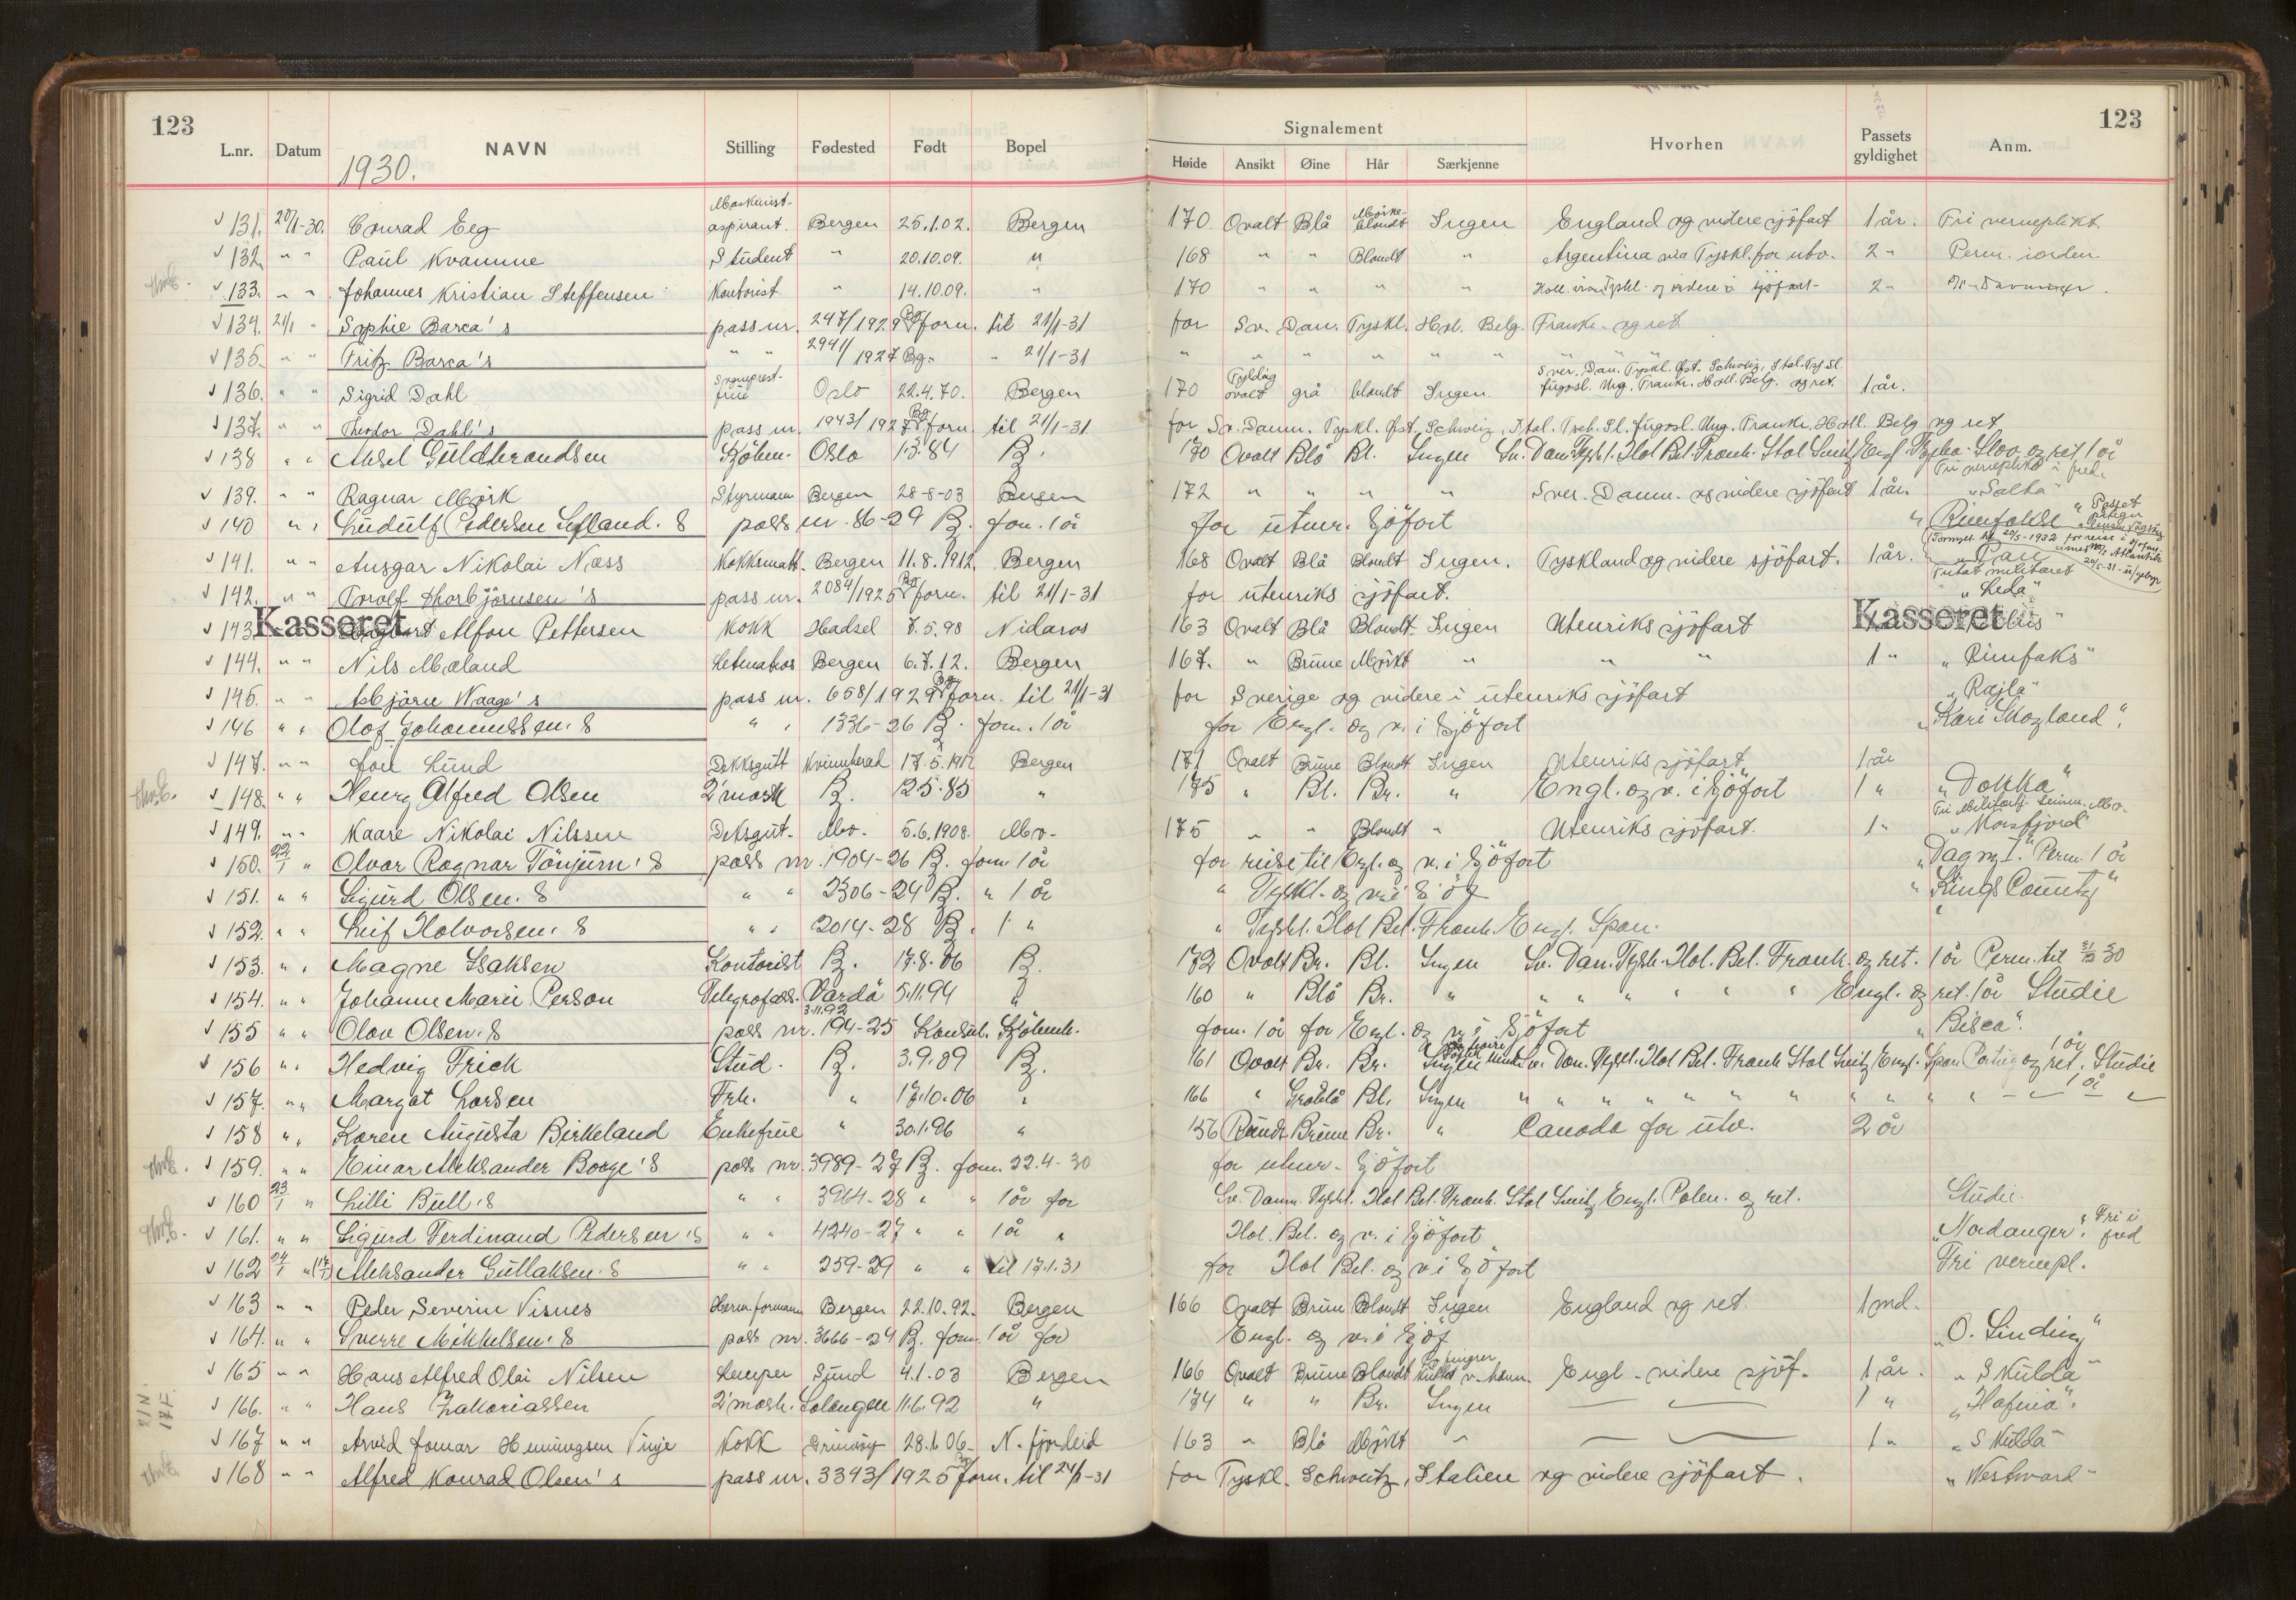 123
123
L.nr. Datum NAVN Stilling Fødested Født Bopel Signalement Hvorhen Passets gyldighet Anm.
Høide Ansikt Øine Hår Særkjenne
1930.
131. 20/1-30. Conrad Eeg Maskinist-aspirant. Bergen 25.1.02. Bergen 170 Ovalt Blå Mörke-blondt Ingen England og videre sjöfart 1 år. Fri verneplikt.
132. " " Paul Kvamme Student " 20.10.09. " 168 " " Blondt " Argentina via Tyskl. for utv. 2 " Perm. i orden
133. " " Johannes Kristian Steffensen Kontorist " 14.10.09. " 170 " " " " Holl. Tyskl. og videre i sjöfart 2 "
134. 21/1 " Sophie Barca's pass nr. 247/1929 Bg forn. til 21/1-31 for Sv. Dan. Tyskl. Hol. Belg. Frankr. og ret.
135. " " Fritz Barca's " " 2941/1927 Bg. " " 21/1-31 " " " " " "
136. " " Sigrid Dahl Sogneprest-frue Oslo 22.4.70. Bergen 170 Fyldig ovalt grå blondt Ingen Sver. Dan. Tyskl. Øst. Schweiz, Ital. Tsj. Sl. Jugosl. Ung. Frankr. Holl. Belg. og ret. 1 år.
137. " " Theodor Dahl's pass nr. 1943/1927 Bg forn. til 21/1-31 for Sv. Danm. Tyskl. Øst. Schweiz, Ital. Sl. Jugosl. Ung. Frankr. Holl. Belg. og ret
138 " " Aksel Guldbrandsen Oslo 1.3.84 B. 170 Ovalt Blå Bl. Ingen Sv. Dan. Tyskl. Hol. Bel. Frank. Ital. Engl. og ret 1 år
139. " " Ragnar Mörk Styrmann Bergen 28-8-03 Bergen 172 " " " " Sver. Danm. og videre sjöfart 1 år. Fri verneplikt i fred. "Salta"
140 " " Ludulf Pedersen pass nr. 86-29 B. forn. 1 år for utenr. Sjöfart "Rimfakse"
141. " " Ansgar Nikolai Næss Kokksmatt. Bergen 11.8.1912. Bergen 168 Ovalt Blå Blondt Ingen. Tyskland og videre sjöfart. 1 år. "Pan"
142. " " Torolf Thorbjörnsen's pass nr. 2084/1925 Bg forn. til 21/1-31 for utenriks sjöfart. "Leda"
Kasseret
Kasseret
143. Alfon Pettersen Kokk Hadsel 7.5.98 Nidaros 163 Ovalt Blå Blondt Ingen Utenriks sjöfart
144. " " Nils Mæland Letmatros Bergen 6.7.12. Bergen 167. " Brune Mörkt " " " 1 " "Rimfaks"
145. " " Asbjörn Waage's pass nr. 658/1929 Bg forn. til 21/1-31 for Sverige og videre i utenriks sjöfart "Rajla"
146 " " Olaf Johannessen's " " 1336-26 B. forn. 1 år for Engl. og v. i Sjöfart "Kari Skogland".
147. " " Jon Lund Dekksgutt Kvinnherad 17.5.1912 Bergen 171 Ovalt Brune Blondt Ingen Utenriks sjöfart 1 år
148. " " Henry Alfred Olsen 2' mask B. 12.5.85 " 175 " Bl. Br. " Engl. og v. i Sjöfart 1 " "Dokka"
149. " " Kaare Nikolai Nilssen Deksgut. Mo. 5.6.1908. Mo. 175 " " Blondt " Utenriks sjöfart. 1 " "Mosfjord"
150. 22/1 " Olvar Ragnar Tönjum's pass nr. 1904-26 B. forn. 1 år for reise til Engl. og v. i Sjöfart "Dagny I." Perm. 1 år
151. " " Sigurd Olsen's " " 2306-24 B. " 1 år " Tyskl. og v. i Sjöf "Kings County"
152. " " Leif Halvorsen's " " 2014-28 B. 1 " " Tyskl. Hol Bel. Frank. Engl. Span.
153. " " Magne Isaksen Kontorist B. 17.8.06 B. 172 Ovalt Br. Bl. Ingen Sv. Dan. Tysk. Hol. Bel. Frank. og ret. 1 år Perm. til 30
154. " " Johanne Marie Person Telegrafass. Vardö 5.11.94 " 160 " Blå Br. " " " " " " " Engl. og ret. 1 år Studie
155 " " Olav Olsen's pass nr. 194-25 3.11.92 Konsul. Kjöbenh. forn. 1 år for Engl. og v. i Sjöfart "Bisca".
156 " " Hedvig Frick Stud. B. 3.9.89 B. 161 Ovalt Br. Br. Ingen Sv. Dan. Tyskl. Hol Bel. Frank Ital Engl. Span Portug og ret. 1 år Studie
157. " " Margot Larsen Frk. " 17.10.06 " 166 " Gråblå Bl. Ingen " " " " " " " " " " " 1 år
158 " " Karen Augusta Birkeland Enkefrue " 30.1.96 " 156 Rundt Brune Br. " Canada for utv. 2 år
159. " " Einar Aleksander Børge's pass nr. 3989-27 B. forn. 22.4-30 for utenr. Sjöfart
160 23/1 " Lilli Bull's " " 3964-28 " " 1 år for Sv. Danm. Tyskl. Hol Bel. Frank. Ital Engl. Polen. og ret. Studie.
161. " " Sigurd Ferdinand Pedersen's " " 4240-27 " " 1 år " Hol. Bel. og v. i Sjöfart "Nordanger". Fri i fred
162 24/1 " Aleksander Gullaksen's " " 259-29 " " til 17.1.31 for Hol Bel. og v. i Sjöfart Fri vernepl.
163 " " Peder Severin Visnes Herm. formann Bergen 22.10.92. Bergen 166 Ovalt Brune Blondt Ingen England og ret. 1 md.
164. " " Sverre Mikkelsen's pass nr. 3666-24 B. forn. 1 år for Engl. og v. i Sjöf "O. Linding"
165 " " Hans Alfred Olai Nilsen Lemper Sund 4.1.03 Bergen 166 Ovalt Brune Blondt v. hånd. Engl. videre sjöf. 1 år. "Skulda"
166. " " Hans Zakariassen 2' mask. Solangen 11.6.92 " 174 " " Br. Ingen 1 "
167 " " Arvid Jomar Henningsen Vinje Kokk 28.1.06 N. fjordeid 163 " Blå Mörkt " 1 " "Skulda"
168 " " Alfred Konrad Olsen's pass nr. 3343/1925 forn. til 24/1-31 for Tyskl. Schweitz, Italien og videre sjöfart. "Westward"